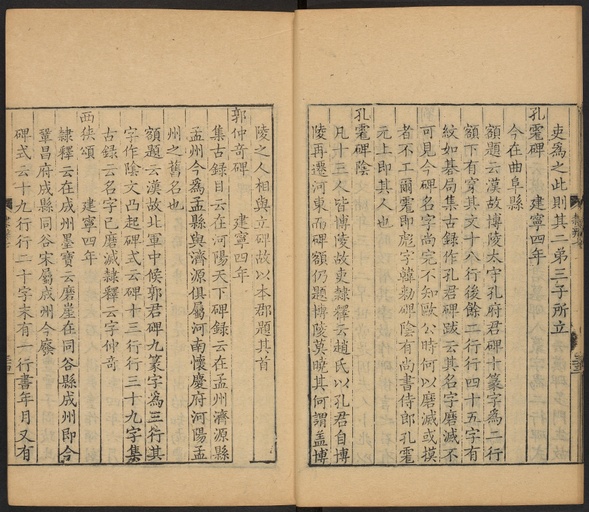 吏為之此則其二弟三子所立
孔霮碑　建寧四年
今在曲阜縣
額題云漢故博陵太守孔府君碑十篆字為二行
額下有穿其文十八行後餘二行行四十五字有
紋如碁局集古錄作孔君碑跋云其名字磨滅不
可見今碑名字尚完不知歐公時何以磨滅或摸
者不工爾霮即彪字韓勑碑陰有尚書侍郎孔霮
元上即其人也
孔霮碑陰
凡十三人皆博陵故吏隸釋云趙氏以孔君自博
陵再遷河東而碑額仍題博陵莫曉其何謂蓋博
陵之人相與立碑故以本郡題其首
郭仲奇碑　建寧四年
集古錄目云在河陽天下碑錄云在孟州濟源縣
孟州今為孟縣與濟源俱屬河南懷慶府河陽孟
州之舊名也
額題云漢故北軍中候郭君碑九篆字為三行其
字作陰文凸起碑式云十三行行三十九字集
古錄云名字已磨滅隸釋云字仲奇
西狹頌　建寧四年
隸釋云在成州墨寶云磨崖在同谷縣成州即今
鞏昌府成縣同谷宋屬成州今廢
碑式云十九行行二十字末有一行書年月又有